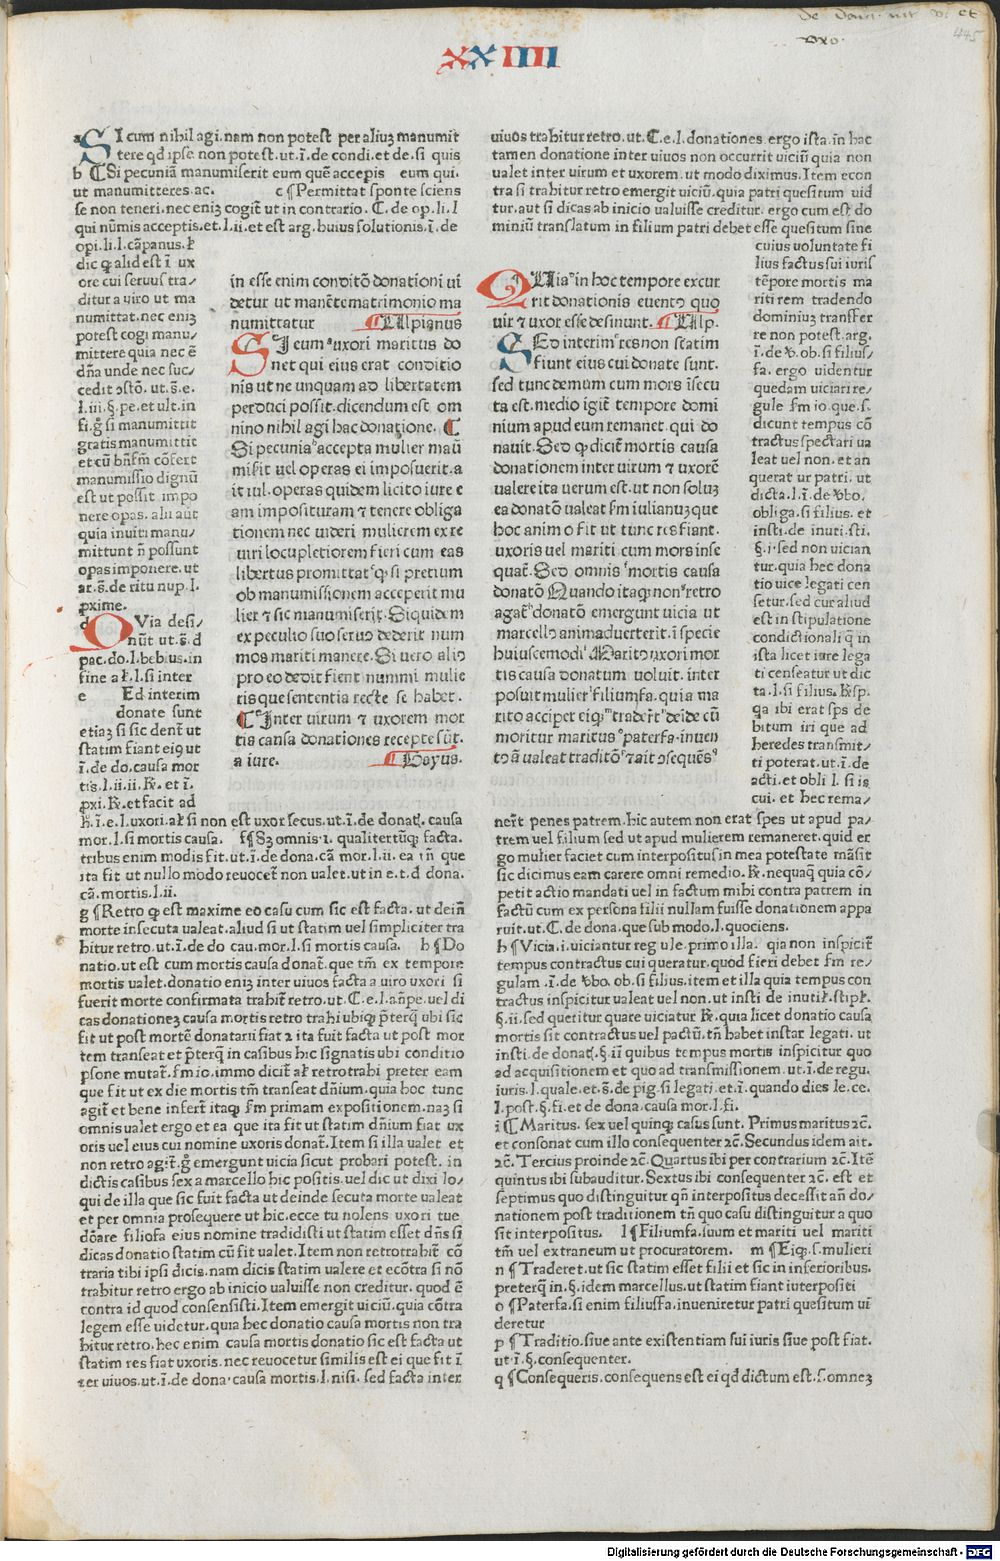 de dona. int vi et
vxo.
445
xxIIII
a SI cum nihil agi. nam non potest per aliuꝫ manumit
tere qd ipse non potest. ut. ī. de condi. et de. si quis
b ¶ Si pecuniā manumiserit eum quē accepis eum qui.
ut manumitteres ac. c ¶ Permittat sponte sciens
se non teneri. nec eniꝫ cogit̄ ut in contrario. C. de op. li. l
qui nūmis acceptis. et. l. ii. et est arg. huius solutionis. ī. de
opi. li. l. cāpanus. ł
dic ꝙ alid est ī ux
ore cui seruus tra⸗
ditur a uiro ut ma
numittat. nec eniꝫ
potest cogi manu⸗
mittere quia nec ē
dn̄a unde nec suc⸗
cedit ꝯstō. ut. s̄. e.
l. iii. §. pe. et ult. in
fi. g̊ si manumittit
gratis manumittit
et cū bn̄fm̄ cōfert
manumissio dignū
est ut possit impo
nere opas. alii aūt
quia inuiti manu⸗
mittunt n̄ possunt
opas imponere. ut
ar. s̄. de ritu nup. l.
ꝓxime.
d QVia desi⸗
nūt ut. s̄. d
pac. do. l. bebius. in
fine a ł. l. si inter
e Ed interim
donate sunt
etiaꝫ si sic dent̄ ut
statim fiant eiꝰ ut
ī. de do. causa mor
tis. l. ii. ii. R̄. et ī.
ꝓxi. R̄. et facit ad
h̄. ī. e. l. uxori. ał si non est uxor secus. ut. ī. de donat̄. causa
mor. l. si mortis causa. f ¶ Sꝫ omnis. i. qualitertūqꝫ facta.
tribus enim modis fit. ut. ī. de dona. cā mor. l. ii. ea in̄ que
ita fit ut nullo modo reuocet̄ non ualet. ut in e. t. d dona.
cā. mortis. l. ii.
g ¶ Retro ꝙ est maxime eo casu cum sic est facta. ut dein̄
morte insecuta ualeat. aliud si ut statim uel simpliciter tra
hitur retro. ut. ī. de do cau. mor. l. si mortis causa. h ¶ Do
natio. ut est cum mortis causa donat̄. que tm̄ ex tempore
mortis ualet. donatio eniꝫ inter uiuos facta a uiro uxori si
fuerit morte confirmata trahit̄ retro. ut. C. e. l. an̄pe. uel di
cas donationeꝫ causa mortis retro trahi ubiqꝫ p̄terqꝫ ubi sic
fit ut post mortē donatarii fiat 2 ita fuit facta ut post mor
tem transeat et p̄terqꝫ in casibus hic signatis ubi conditio
ꝑsone mutat̄. fm io. immo dicit̄ ał retrotrahi preter eam
que fit ut ex die mortis tm̄ transeat dn̄ium. quia hoc tunc
agit̄ et bene infert̄ itaqꝫ fm primam expositionem. naꝫ si
omnis ualet ergo et ea que ita fit ut statim dn̄ium fiat ux
oris uel eius cui nomine uxoris donat̄. Item si illa ualet et
non retro agit̄. g̊ emergunt uicia sicut probari potest. in
dictis casibus sex a marcello hic positis. uel dic ut dixi lo⸗
qui de illa que sic fuit facta ut deinde secuta morte ualeat
et per omnia prosequere ut hic. ecce tu nolens uxori tue
dōare filiofa eius nomine tradidisti ut statim esset dn̄s si
dicas donatio statim cū fit ualet. Item non retrotrahit̄ cō
traria tibi ipsi dicis. nam dicis statim ualere et ecōtra si nō
trahitur retro ergo ab inicio ualuisse non creditur. quod ē
contra id quod consensisti. Item emergit uiciū. quia cōtra
legem esse uidetur. quia hec donatio causa mortis non tra
hitur retro. hec enim causa mortis donatio sic est facta ut
statim res fiat uxoris. nec reuocetur similis est ei que fit ī
ter uiuos. ut. ī. de dona. causa mortis. l. nisi. sed facta inter
in esse enim conditō donationi ui
detur ut manēte matrimonio ma
numittatur ¶ Ulpianus
SI cum uxori maritus do
net qui eius erat conditio
nis ut ne unquam ad libertatem
perduci possit. dicendum est om
nino nihil agi hac donatione. ¶
Si pecunia accepta mulier manū
misit uel operas ei imposuerit. a
it iul. operas quidem licito iure e
am imposituram 7 tenere obliga
tionem nec uideri mulierem ex re
uiri locupletiorem fieri cum eas
libertus promittat ꝙ si precium
ob manumissionem acceperit mu
lier 7 sic manumiserit. Siquidem
ex peculio suo seruo dederit num
mos mariti manere. Si uero alio
pro eo dedit fient nummi mulie
ris que sententia recte se habet.
¶ Inter uirum 7 uxorem mor
tis causa donationes recepte sūt.
a iure. ¶ Gayus.
uiuos trahitur retro. ut. C. e. l. donationes. ergo ista. in hac
tamen donatione inter uiuos non occurrit uiciū quia non
ualet inter uirum et uxorem. ut modo diximus. Item econ
tra si trahitur retro emergit uiciū. quia patri quesitum uid
tur. aut si dicas ab inicio ualuisse creditur. ergo cum est do
miniū translatum in filium patri debet esse quesitum sine
cuius uoluntate fi
lius factus sui iuris
tēpore mortis ma
riti rem tradendo
dominiuꝫ transfer
re non potest. arg.
ī. de ꝟ. ob. si filius⸗
fa. ergo uidentur
quedam uiciari re⸗
gule fm io. que. s.
dicunt tempus cō
tractus spectari ua
leat uel non. et an
querat̄ patri. ut
dicta. l. ī. de ꝟbo.
obliga. si filius. et
insti. de inuti. sti.
§. i. sed non uician
tur. quia hec dona
tio uice legati cen
setur. sed cur aliud
est in stipulatione
condictionali q̄ in
ista licet iure lega
ti censeatur ut dic
ta. l. si filius. R̄ sp.
qa ibi erat sps de
bitum iri que ad
heredes transmit⸗
ti poterat. ut. ī. de
acti. et obli l. si is
cui. et hec rema⸗
neret̄ penes patrem. hic autem non erat spes ut apud pa⸗
trem uel filium sed ut apud mulierem remaneret. quid er
go mulier faciet cum interpositus in mea potestate māsit
sic dicimus eam carere omni remedio. R̄. nequaqꝫ quia cō⸗
petit actio mandati uel in factum mihi contra patrem in
factū cum ex persona filii nullam fuisse donationem appa
ruit. ut. C. de dona. que sub modo. l. quociens.
h ¶ Vicia. i. uiciantur regule. primo illa. qia non inspicit̄
tempus contractus cui queratur. quod fieri debet fm re⸗
gulam. ī. de ꝟbo. ob. si filius. item et illa quia tempus con
tractus inspicitur ualeat uel non. ut insti de inutił. stipł.
§. ii. sed queritur quare uiciatur R̄. quia licet donatio causa
mortis sit contractus uel pactū. tn̄ habet instar legati. ut
insti. de donat̄. §. ī. in quibus tempus mortis inspicitur quo
ad acquisitionem et quo ad transmissionem. ut. ī. de regu.
iuris. l. quale. et. s̄. de pig. si legati. et. ī. quando dies le. ce.
l. post. §. fi. et de dona. causa mor. l. fi.
i ¶ Maritus. sex uel quinqꝫ casus sunt. Primus maritus 2c̄.
et consonat cum illo consequenter 2c̄. Secundus idem ait.
2c̄. Tercius proinde 2c̄. Quartus ibi per contrarium 2c̄. Itē
quintus ibi subauditur. Sextus ibi consequenter 2c̄. est et
septimus quo distinguitur qn̄ interpositus decessit an̄ do⸗
nationem post traditionem tn̄ quo casu distinguitur a quo
sit interpositus. l ¶ Filiumfa. suum et mariti uel mariti
tm̄ uel extraneum ut procuratorem. m ¶ Eiqꝫ. s. mulieri
n ¶ Traderet. ut sic statim esset filii et sic in inferioribus.
preterqꝫ in. §. idem marcellus. ut statim fiant interpositi
o ¶ Paterfa. si enim filiusfa. inueniretur patri quesitum ui
deretur
p ¶ Traditio. siue ante existentiam sui iuris siue post fiat.
ut. ī. §. consequenter.
q ¶ Consequeris. consequens est ei qd dictum est. s. omneꝫ
QUia in hoc tempore excur
rit donationis euentꝰ quo
uir 7 uxor esse desinunt. ¶ Ulp.
SEd interim res non statim
fiunt eius cui donate sunt.
sed tunc demum cum mors isecu
ta est. medio igit̄ tempore domi
nium apud eum remanet. qui do
nauit. Sed ꝙ dicit̄ mortis causa
donationem inter uirum 7 uxorē
ualere ita uerum est. ut non soluꝫ
ea donatō ualeat fm iulianuꝫ que
hoc animo fit ut tunc res fiant.
uxoris uel mariti cum mors inse
quat̄. Sed omnis mortis causa
donatō Quando itaqꝫ non retro
agat̄ donatō emergunt uicia ut
marcello animaduerterit. i specie
huiuscemodi Marito uxori mor
tis causa donatum uoluit. inter
posuit mulier filiumfa. quia ma
rito acciperet eiqꝫ traderet̄ deīde cū
moritur maritus paterfa. inuen
to ā ualeat traditō 7 ait ꝯsequēs